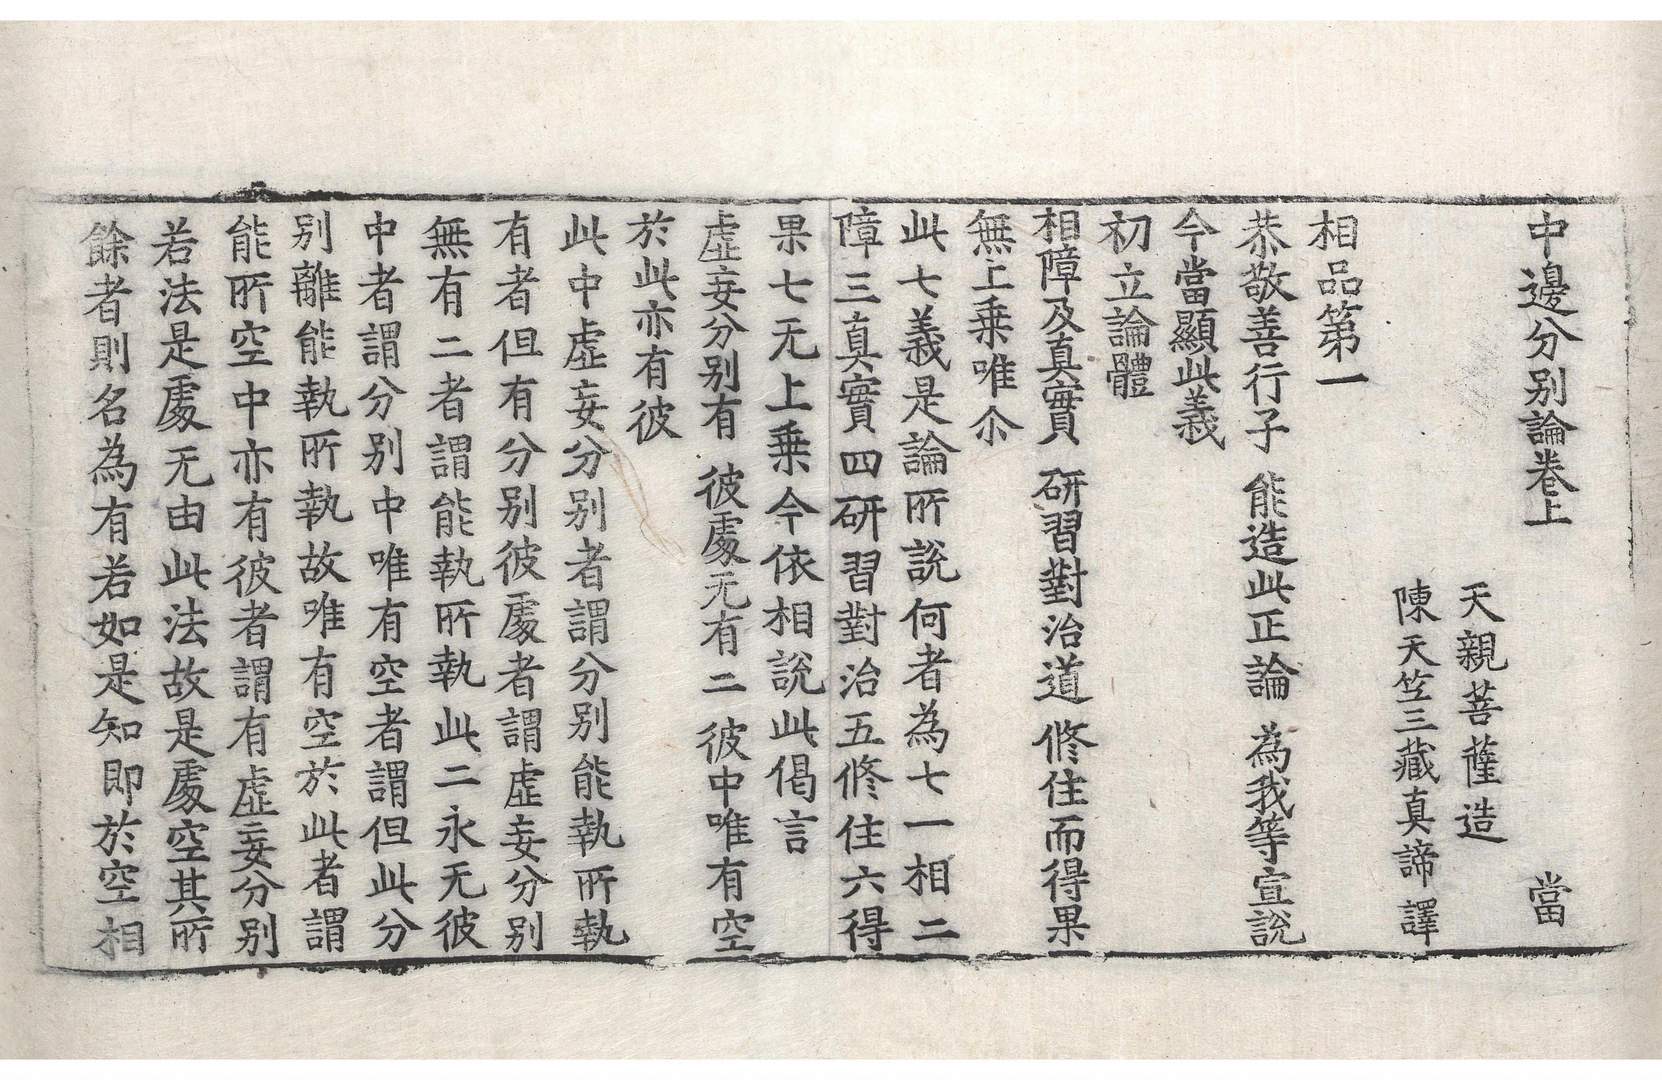 中邊分别論卷上 當
天親菩薩造
陳天竺三藏真諦譯
相品第一
恭敬善行子 能造此正論 為我等宣説
今當顯此義
初立論體
相障及真實 研習對治道 修住而得果
無上乗唯尒
此七義是論所説何者為七一相二
障三真實四研習對治五修住六得
果七无上乗今依相説此偈言
虚妄分别有 彼處无有二 彼中唯有空
於此亦有彼
此中虚妄分别者謂分别能執所執
有者但有分别彼處者謂虚妄分别
無有二者謂能執所執此二永无彼
中者謂分别中唯有空者謂但此分
别離能執所執故唯有空於此者謂
能所空中亦有彼者謂有虚妄分别
若法是處无由此法故是處空其所
餘者則名為有若如是知即於空相